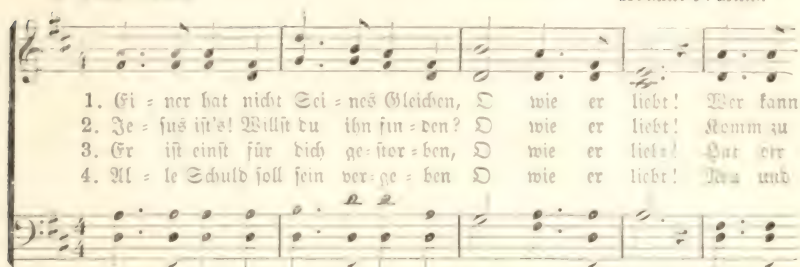 1. Ei = ner hat nicht Sei = nes Gleichen, O wie er liebt! Wer kann
2. Je = sus ist's! Willst du ihn fin = den? O wie er liebt! Komm zu
3. Er ist einst für dich ge = stor = ben, O wie er liebt! Hat dir
4. Al = le Schuld soll sein ver = ge = ben O wie er liebt! Neu und